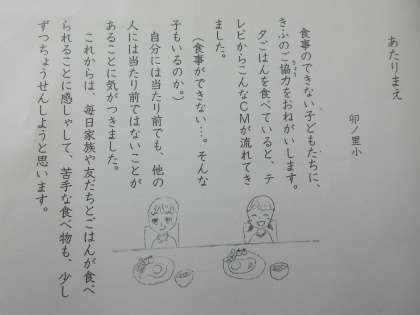 あたりまえ
卯ノ里小
食事のできない子どもたちに、
きふのご協力をおねがいします。
夕ごはんを食べていると、テ
レビからこんなCMが流れてき
ました。
（食事ができない…。そんな
子もいるのか。）
自分には当たり前でも、他の
人には当たり前ではないことが
あることに気がつきました。
これからは、毎日家族や友だちとごはんが食べ
られることに感しゃして、苦手な食べ物も、少し
ずつちょうせんしようと思います。